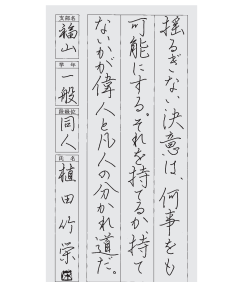 揺るぎない決意は、何事をも
可能にする。それを持てるか、持て
ないかが偉人と凡人の分かれ道だ。
支部名 福山 学年 一般 段級位 同人 氏名 植田竹栄